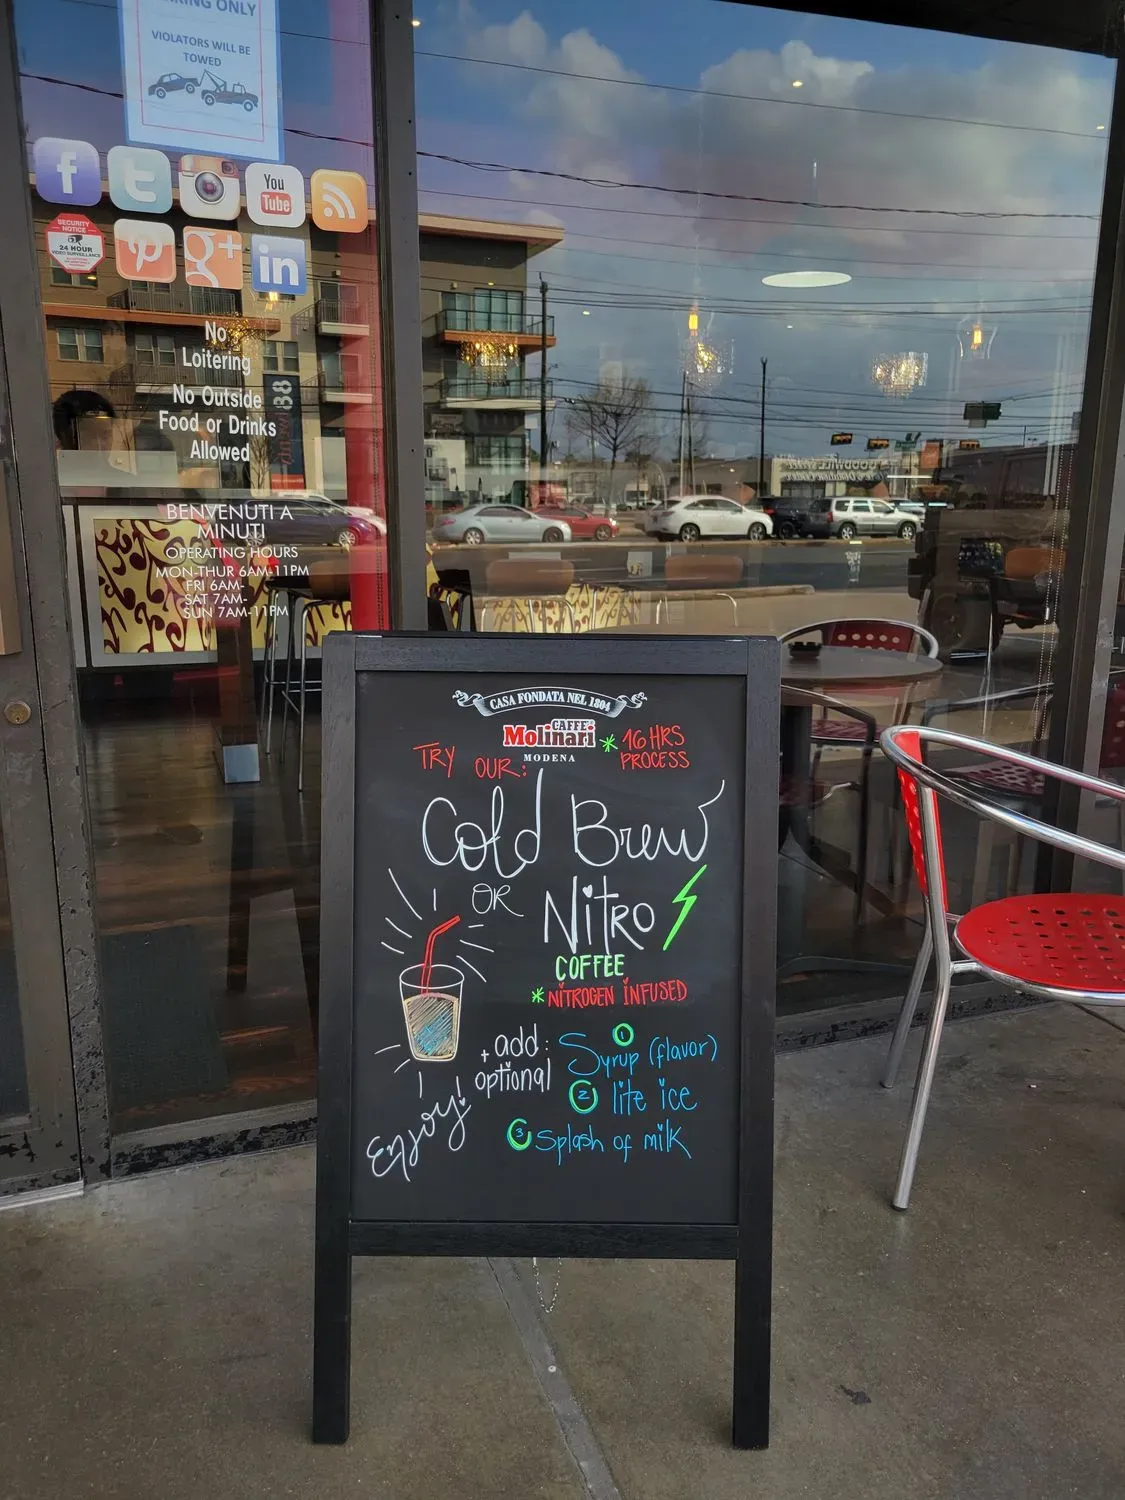 KING ONLY
VIOLATORS WILL BE
TOWED
f
t
You
Tube
SECURITY
NOTICE
24 HOUR
VIDEO SURVEILLANCE
p
g+
in
No
Loitering
No Outside
Food or Drinks
Allowed
88
BENVENUTI A
MINUTI
OPERATING HOURS
MON-THUR 6AM-11PM
FRI 6AM-
SAT 7AM-
SUN 7AM-11PM
CASA FONDATA NEL 1804
CAFFÈ
Molinari
MODENA
* 16 HRS
PROCESS
TRY OUR:
Cold Brew
OR NiTRO
COFFEE
* NiTROGEN iNFUSED
+ add:
optional
1
Syrup (flavor)
2 lite ice
3 Splash of milk
Enjoy!